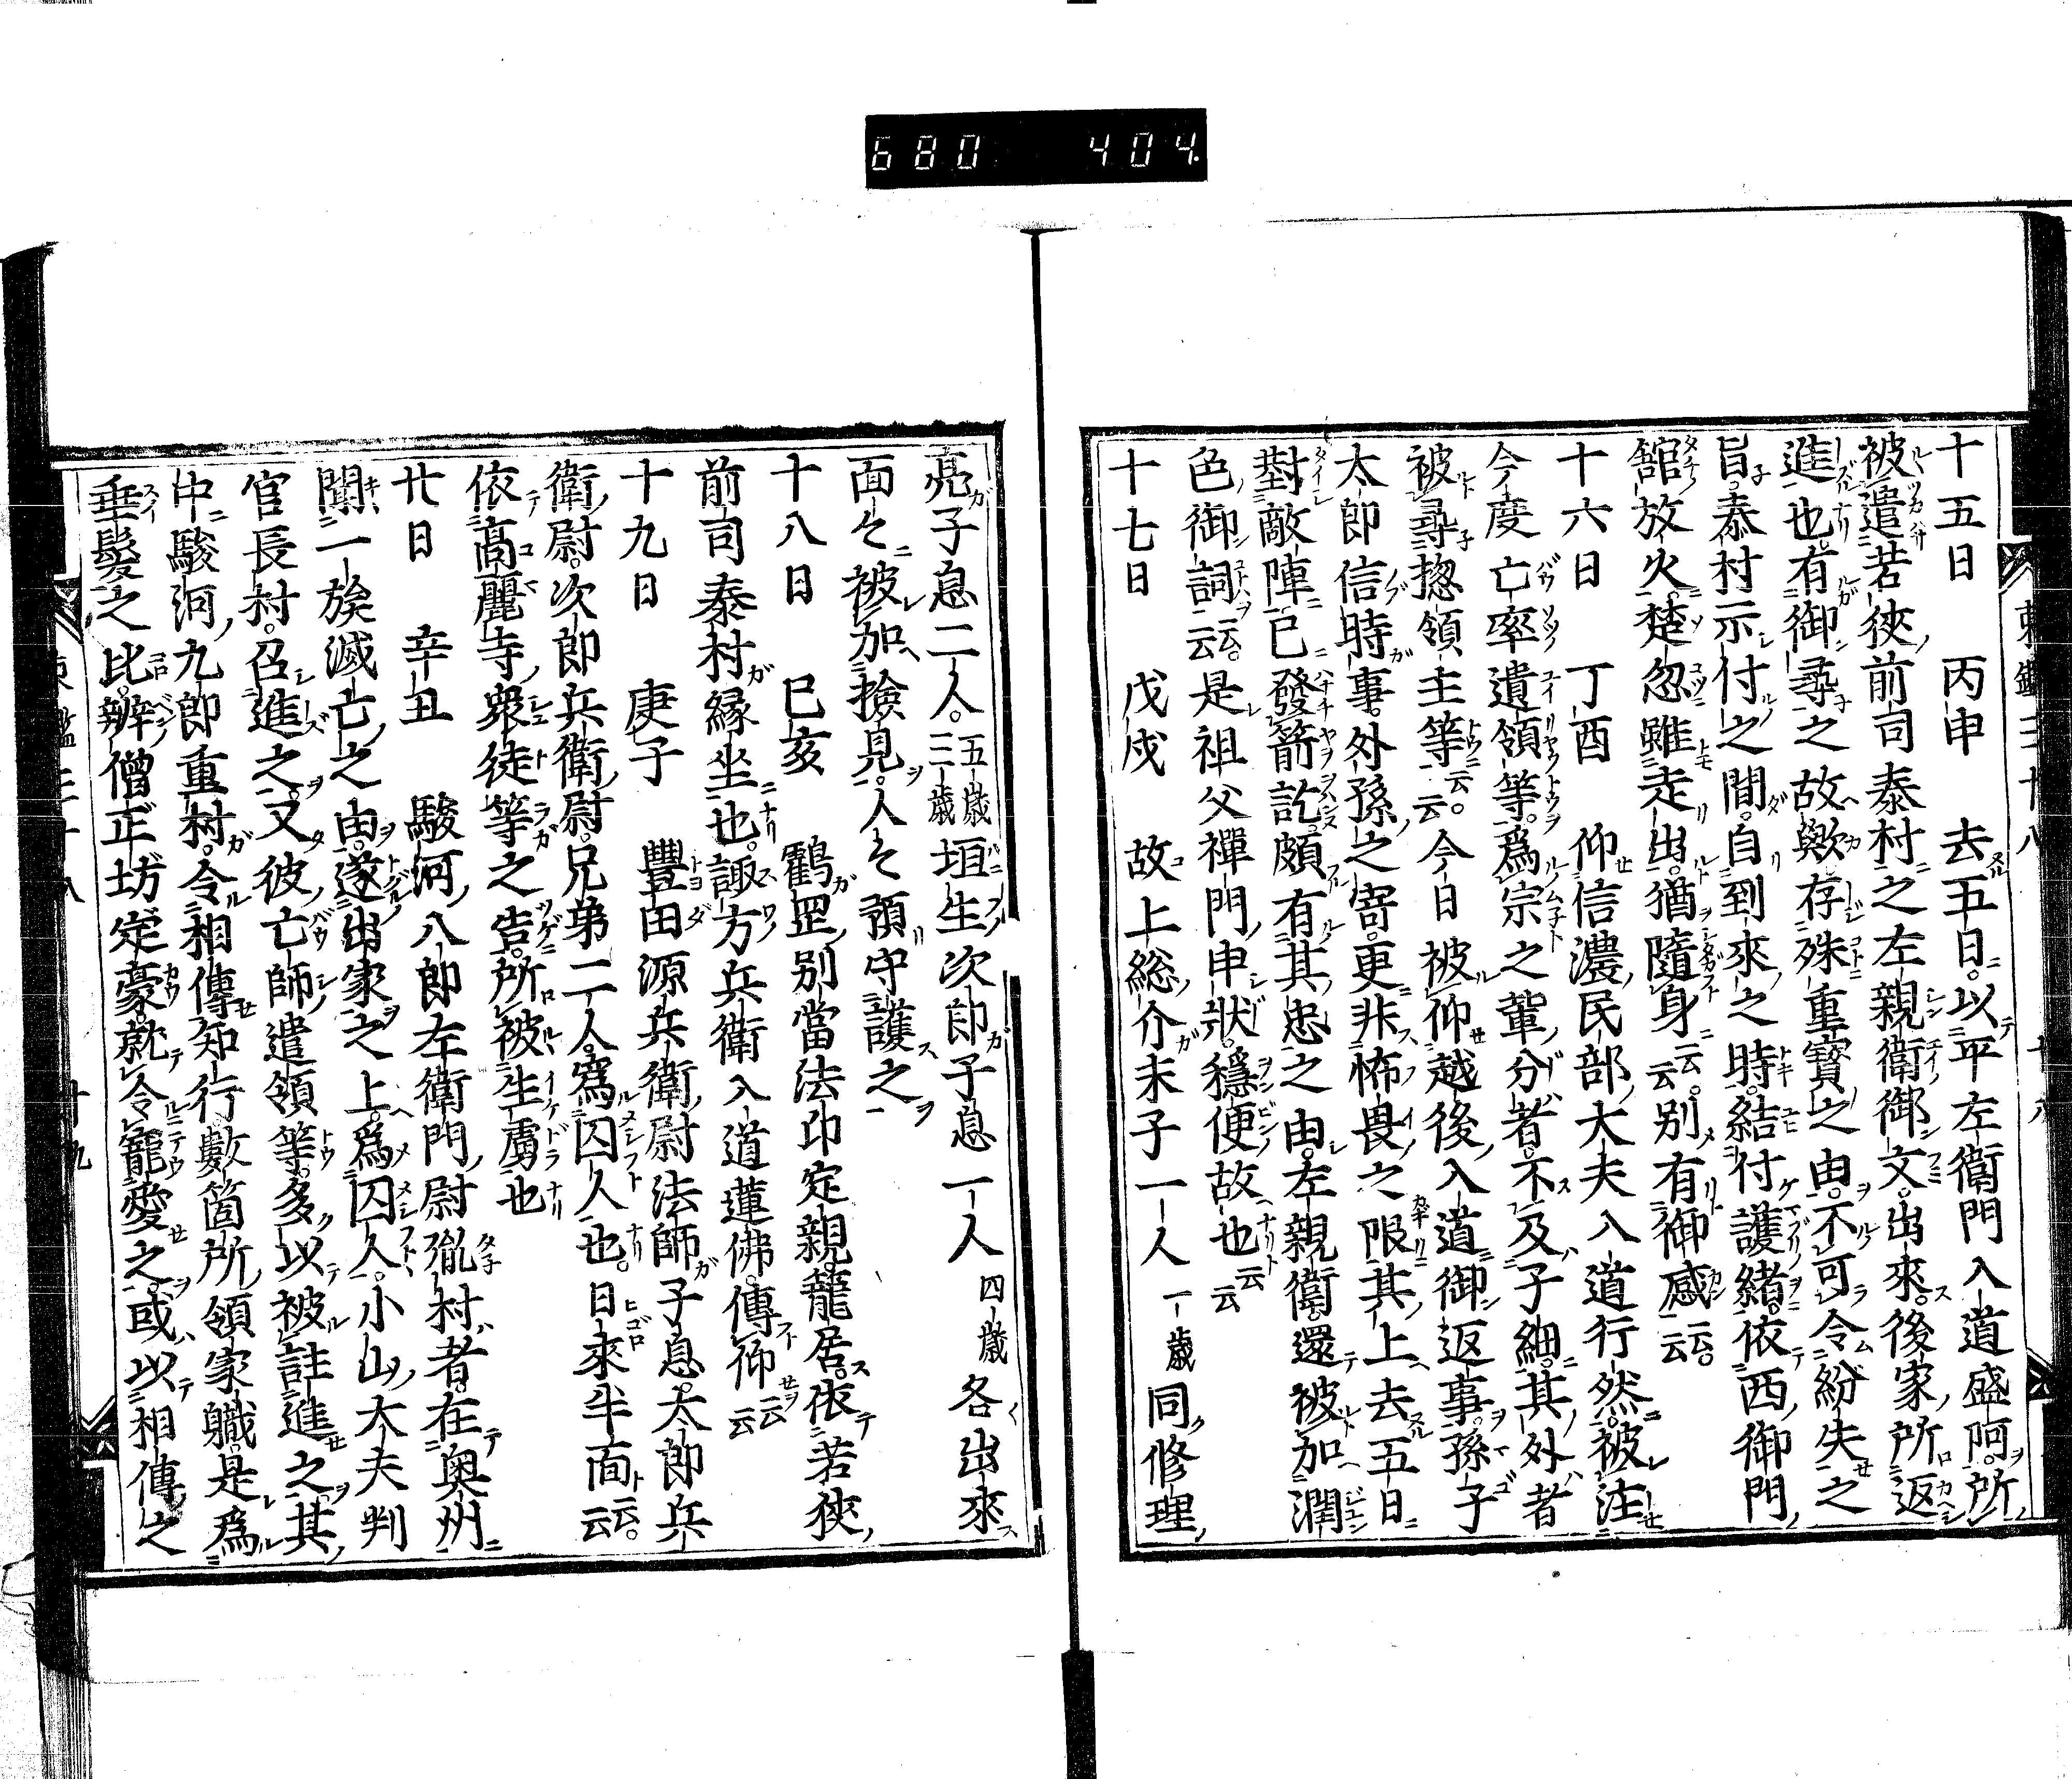 680 404
十五日 丙申 去五日以平左衛門入道盛阿所
被遣若狹前司泰村之左親衛御文出來後家所返
進也有御尋之故歟存殊重寳之由不可令紛失之
旨泰村示付之間自到來之時結付護緒依西御門
舘放火楚忽雖走出猶隨身云云別有御感云云
十六日 丁酉 仰信濃民部大夫入道行然被注
今度亡卒遺領等爲宗之輩分者不及子細其外者
被尋惣領主等云云今日被仰越後入道御返事孫子
太郎信時事外孫之寄更非怖畏之限其上去五日
對敵陣已發箭訖頗有其忠之由左親衛還被加潤
色御詞云云是祖父禪門申狀穩便故也云云
十七日 戊戌 故上総介末子一人一歳同修理
亮子息二人五歳三歳垣生次郎子息一人四歳各出來
面々被加撿見人々預守護之
十八日 巳亥 鶴罡別當法印定親籠居依若狹
前司泰村縁坐也諏方兵衛入道蓮佛傳仰云云
十九日 庚子 豐田源兵衛尉法師子息太郎兵
衛尉次郎兵衛尉兄弟二人爲囚人也日來半面云云
依髙麗寺衆徒等之告所被生虜也
廿日 辛丑 駿河八郎左衛門尉胤村者在奥州
聞一族滅亡之由遂出家之上爲囚人小山大夫判
官長村召進之又彼亡師遺領等多以被註進之其
中駿河九郎重村令相傳知行數箇所領家職是爲
垂髮之比辨僧正坊定豪就令寵愛之或以相傳之